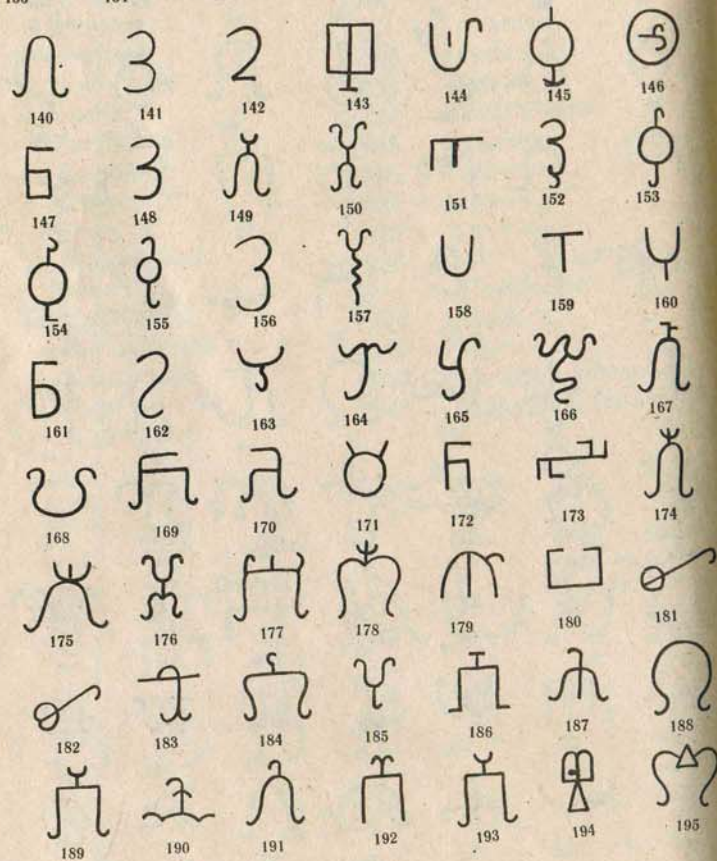 140 141 142 143 144 145 146
147 148 149 150 151 152 153
154 155 156 157 158 159 160
161 162 163 164 165 166 167
168 169 170 171 172 173 174
175 176 177 178 179 180 181
182 183 184 185 186 187 188
189 190 191 192 193 194 195